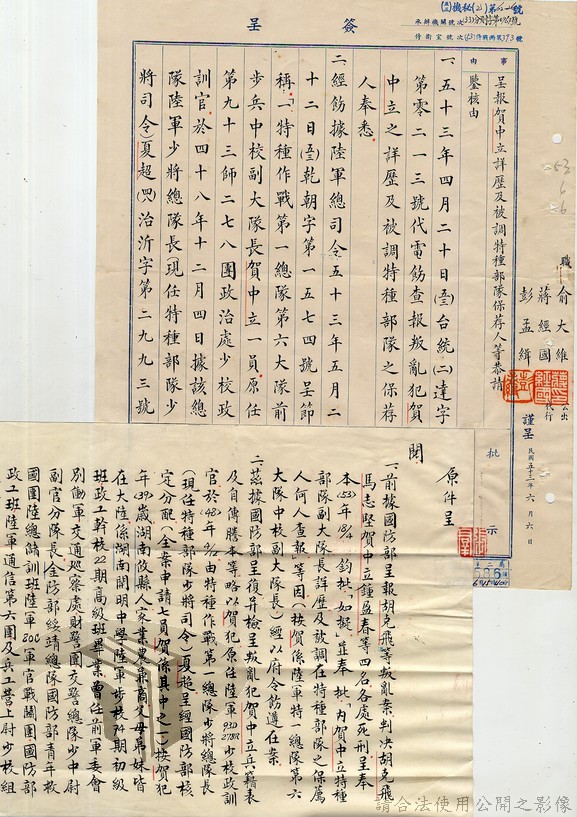 簽呈
機秘(乙)第 號
承辦機關號次
侍衛室號次
事由
呈報賀中立詳歷及被調特種部隊保荐人等恭請
鑒核由
職
俞大維
蔣經國
彭孟緝
公出
代行
謹呈
民國五十三年六月六日
批示
一、五十三年四月二十日(53)台統(二)達字
第零二一三號代電飭查報叛亂犯賀
中立之詳歷及被調特種部隊之保荐
人奉悉。
二、經飭據陸軍總司令五十三年五月二
十二日(53)乾朝字第一五七四號呈節
稱「一、特種作戰第一總隊第六大隊前
步兵中校副大隊長賀中立一員原任
第九十三師二七八團政治處少校政
訓官。於四十八年十二月四日據該總
隊陸軍少將總隊長(現任特種部隊少
將司令)夏超(48)治沂字第二九九三號
原件呈
閱
一、前據國防部呈報胡克飛等叛亂案判決胡克飛
馬志堅賀中立鍾盈春等四名各處死刑呈奉
本(53)年18/4鈞批「如擬」並奉批「內賀中立特種
部隊副大隊長詳歷及放調在特種部隊之保薦
人何人查報」等因(按賀係陸軍特一總隊第六
大隊中校副大隊長)經以府令飭遵在案
二、茲據國防部呈復并檢呈叛亂犯賀中立兵籍表
及自傳謄本等略以賀犯原任陸軍93D278R少校政訓
官於(48)年4/12由特種作戰第一總隊少將總隊長
(現任特種部隊少將司令)夏超呈經國防部核
定分配(全案申請七員賀係其中之一)按賀犯
年(39)歲湖南攸縣人家業農兼商父母弟妹皆
在大陸係湖南開明中學陸軍步校74期初級
班政工幹校22期高級班畢業曾任前軍委會
別働軍交通巡察處財警團交警總隊少中尉
副官分隊長金防部綏靖總隊國防部青年救
國團陸總儲訓班陸軍200軍官戰鬪團國防部
政工班陸軍通信第六團及兵工營上尉少校組
請合法使用公開之影像